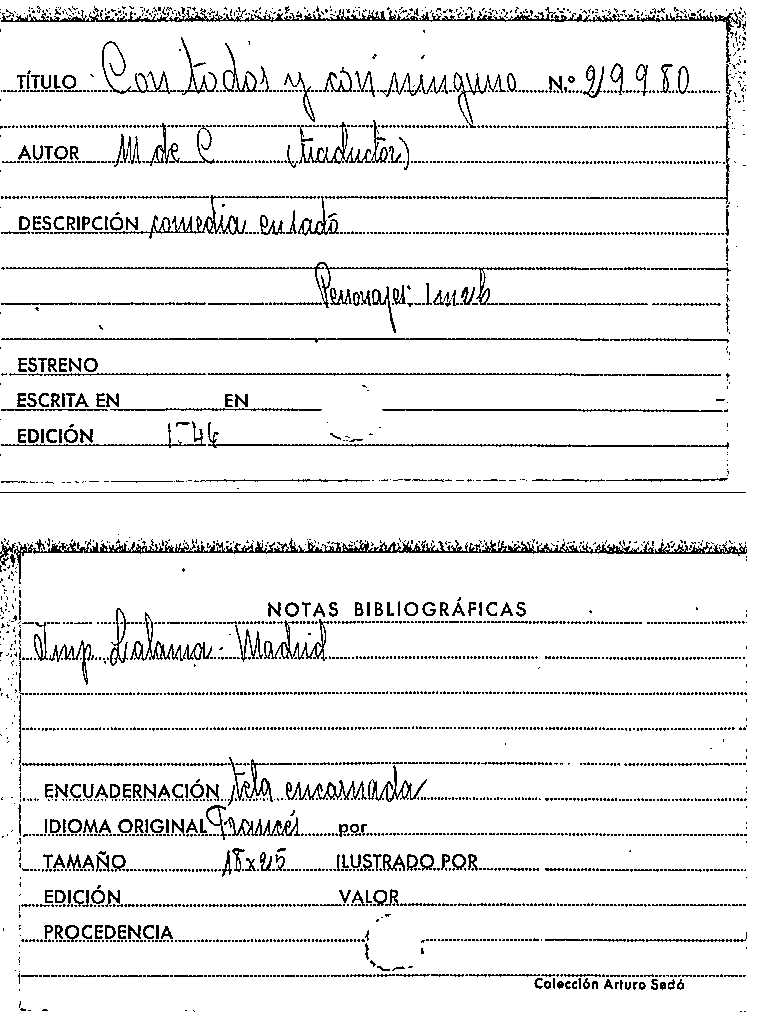 TÍTULO Con todos y con ninguno N.º 29980
AUTOR M de C (traductor)
DESCRIPCIÓN comedia en 1 acto
Personajes: 1m 2h
ESTRENO
ESCRITA EN EN
EDICIÓN
NOTAS BIBLIOGRÁFICAS
Imp. Lalama - Madrid
ENCUADERNACIÓN tela encarnada
IDIOMA ORIGINAL Francés por
TAMAÑO 18x25 ILUSTRADO POR
EDICIÓN VALOR
PROCEDENCIA
Colección Arturo Sedó